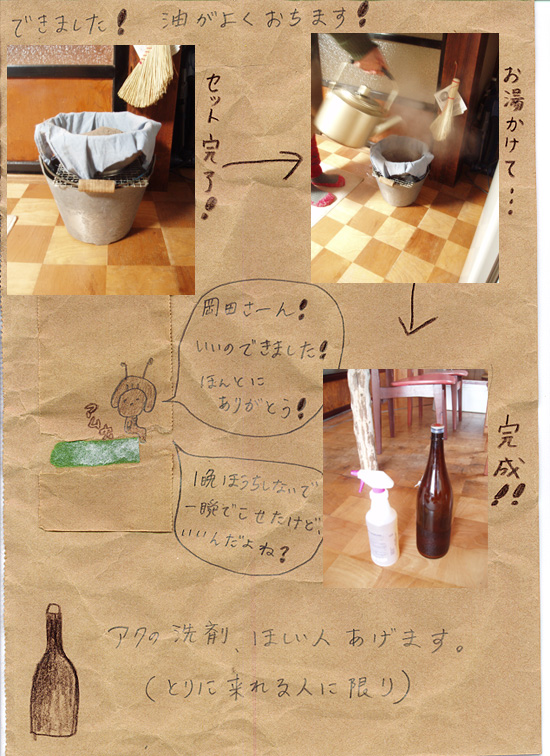 できました! 油がよくおちます!
セット完了!
お湯かけて…
岡田さーん!
いいのできました!
ほんとに
ありがとう!
1晩ほうちしないで
一瞬でこせたけど、
いいんだよね?
完成!!
アクの洗剤、ほしい人あげます。
(とりに来れる人に限り)